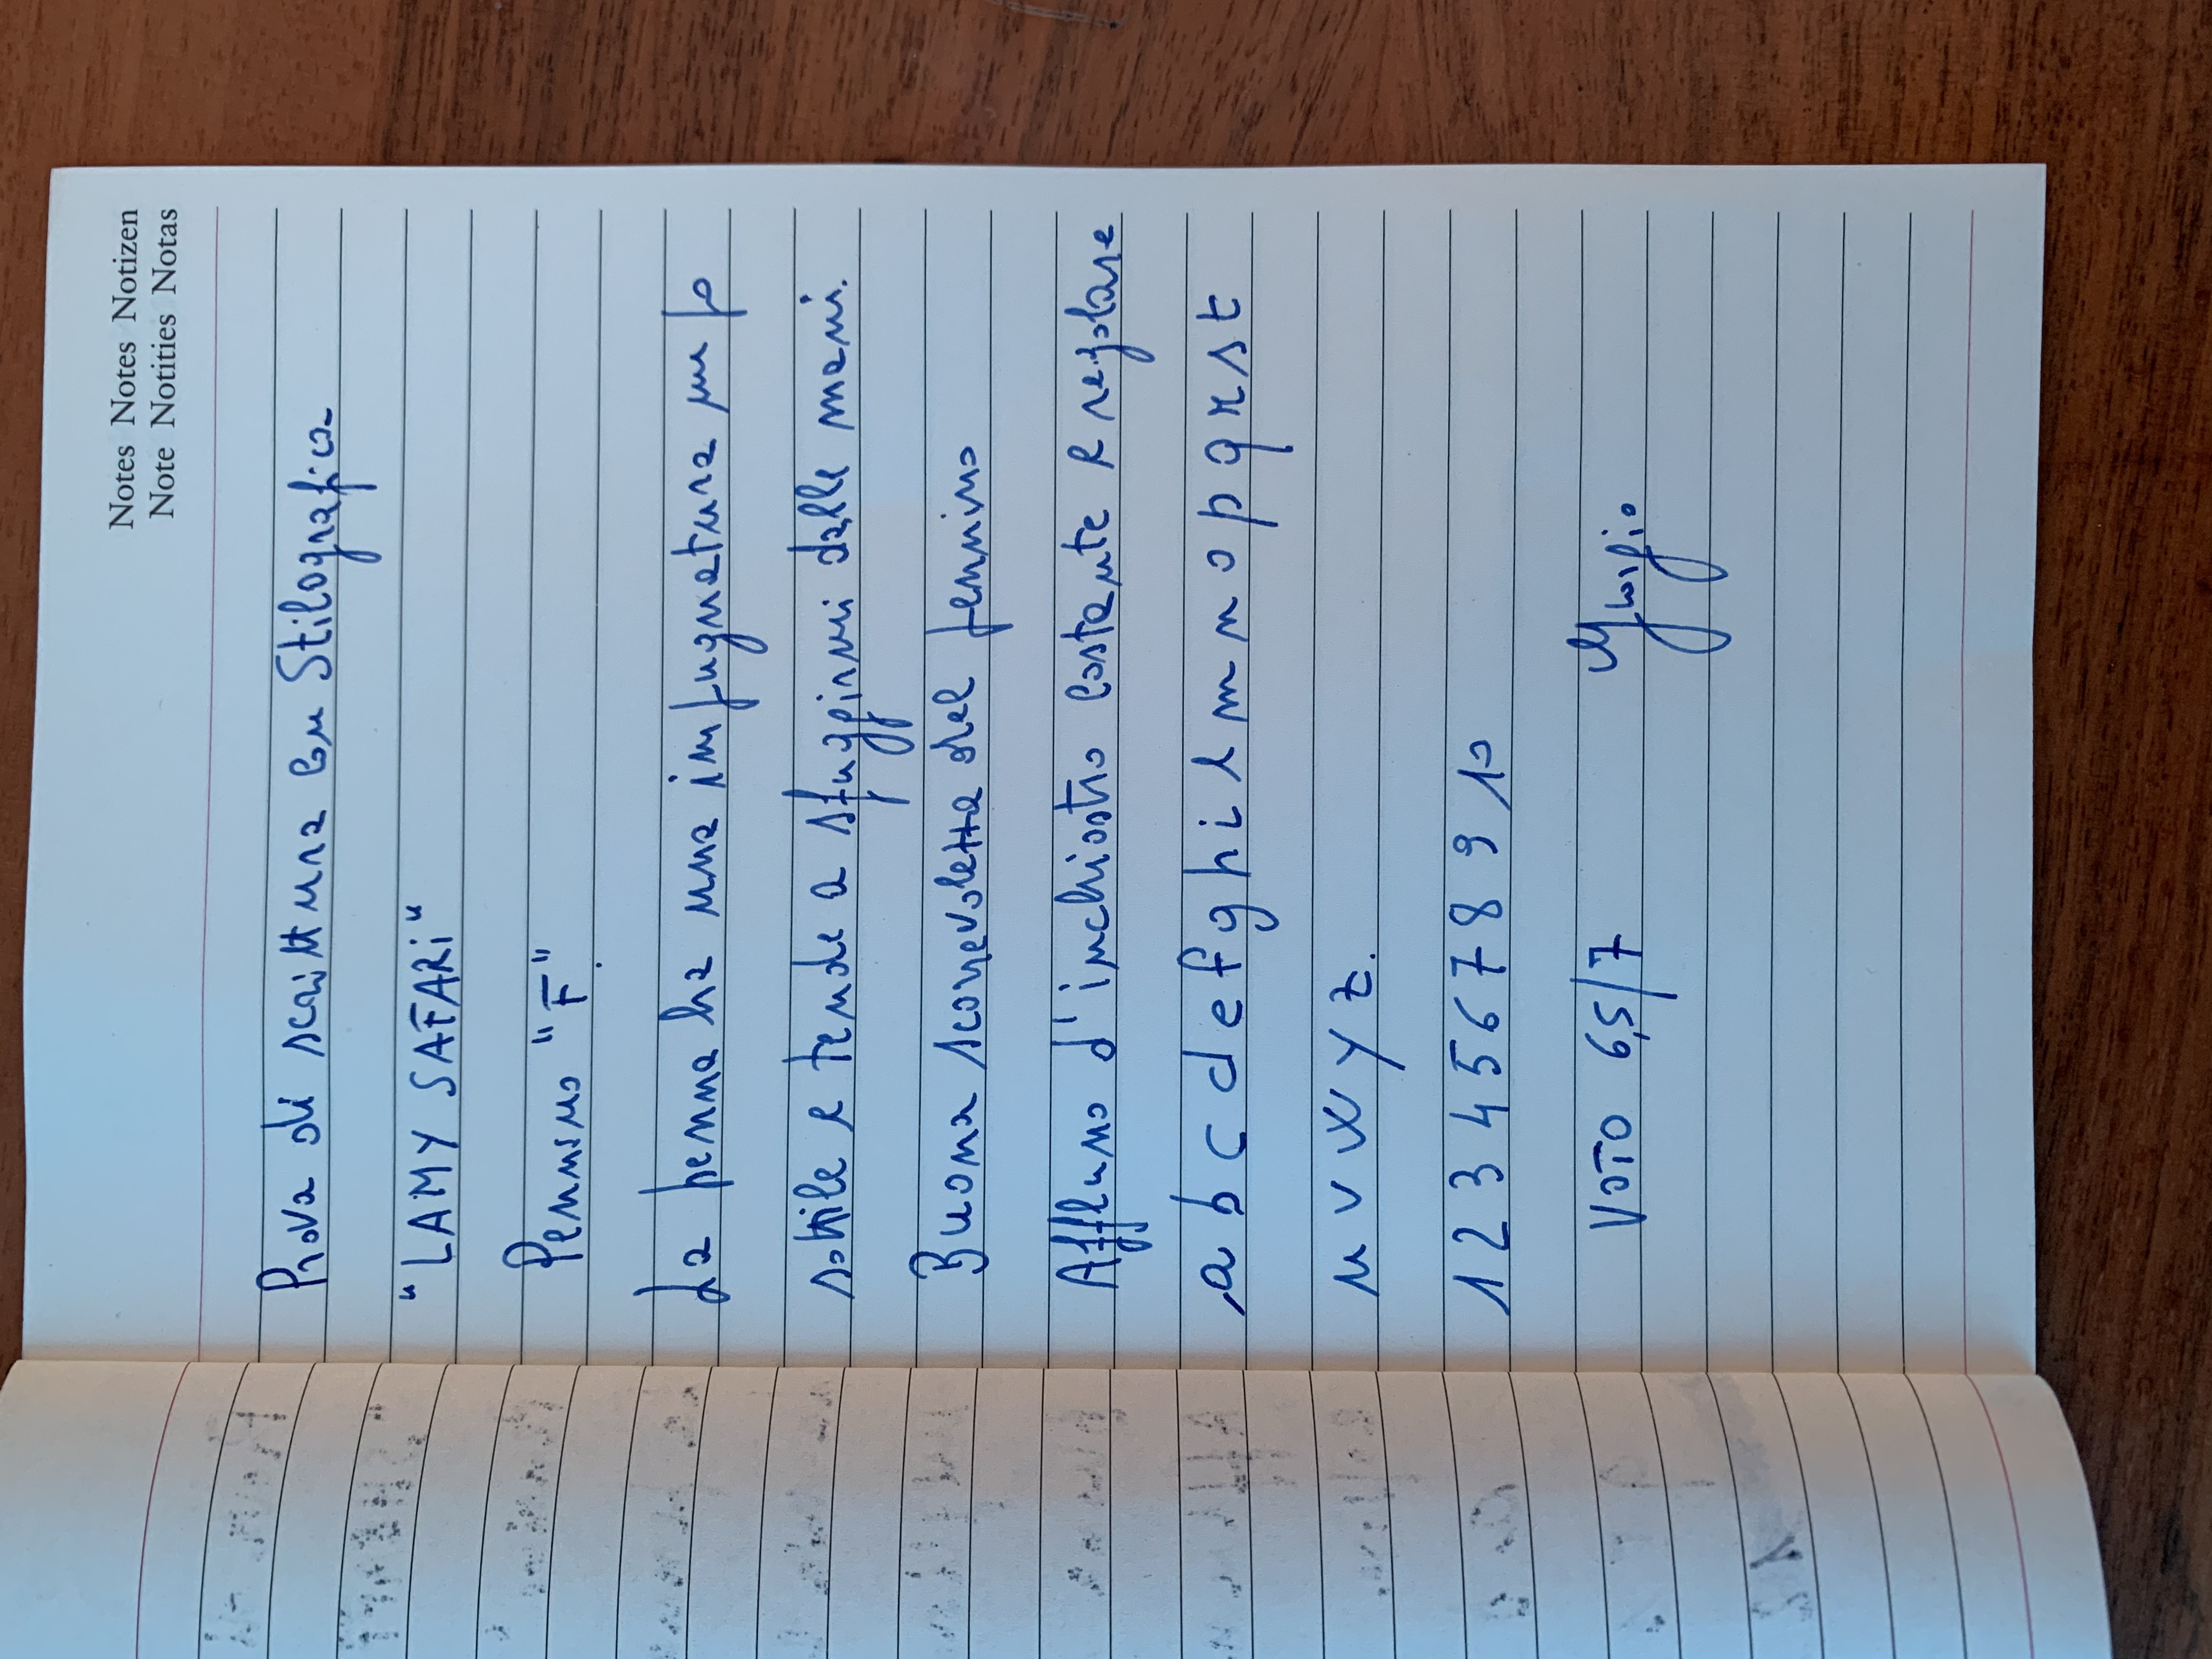 Notes Notes Notizen
Note Notities Notas
Prova di scrittura con Stilografica
"LAMY SAFARI"
Pennino "F"
La penna ha una impugnatura un po
sottile e tende a sfuggirmi dalle mani.
Buona scorrevoletta del pennino
Afflusso d'inchiostro costante e regolare
a b c d e f g h i l m n o p q r s t
u v w y z.
1 2 3 4 5 6 7 8 9 10
VOTO 6,5/7